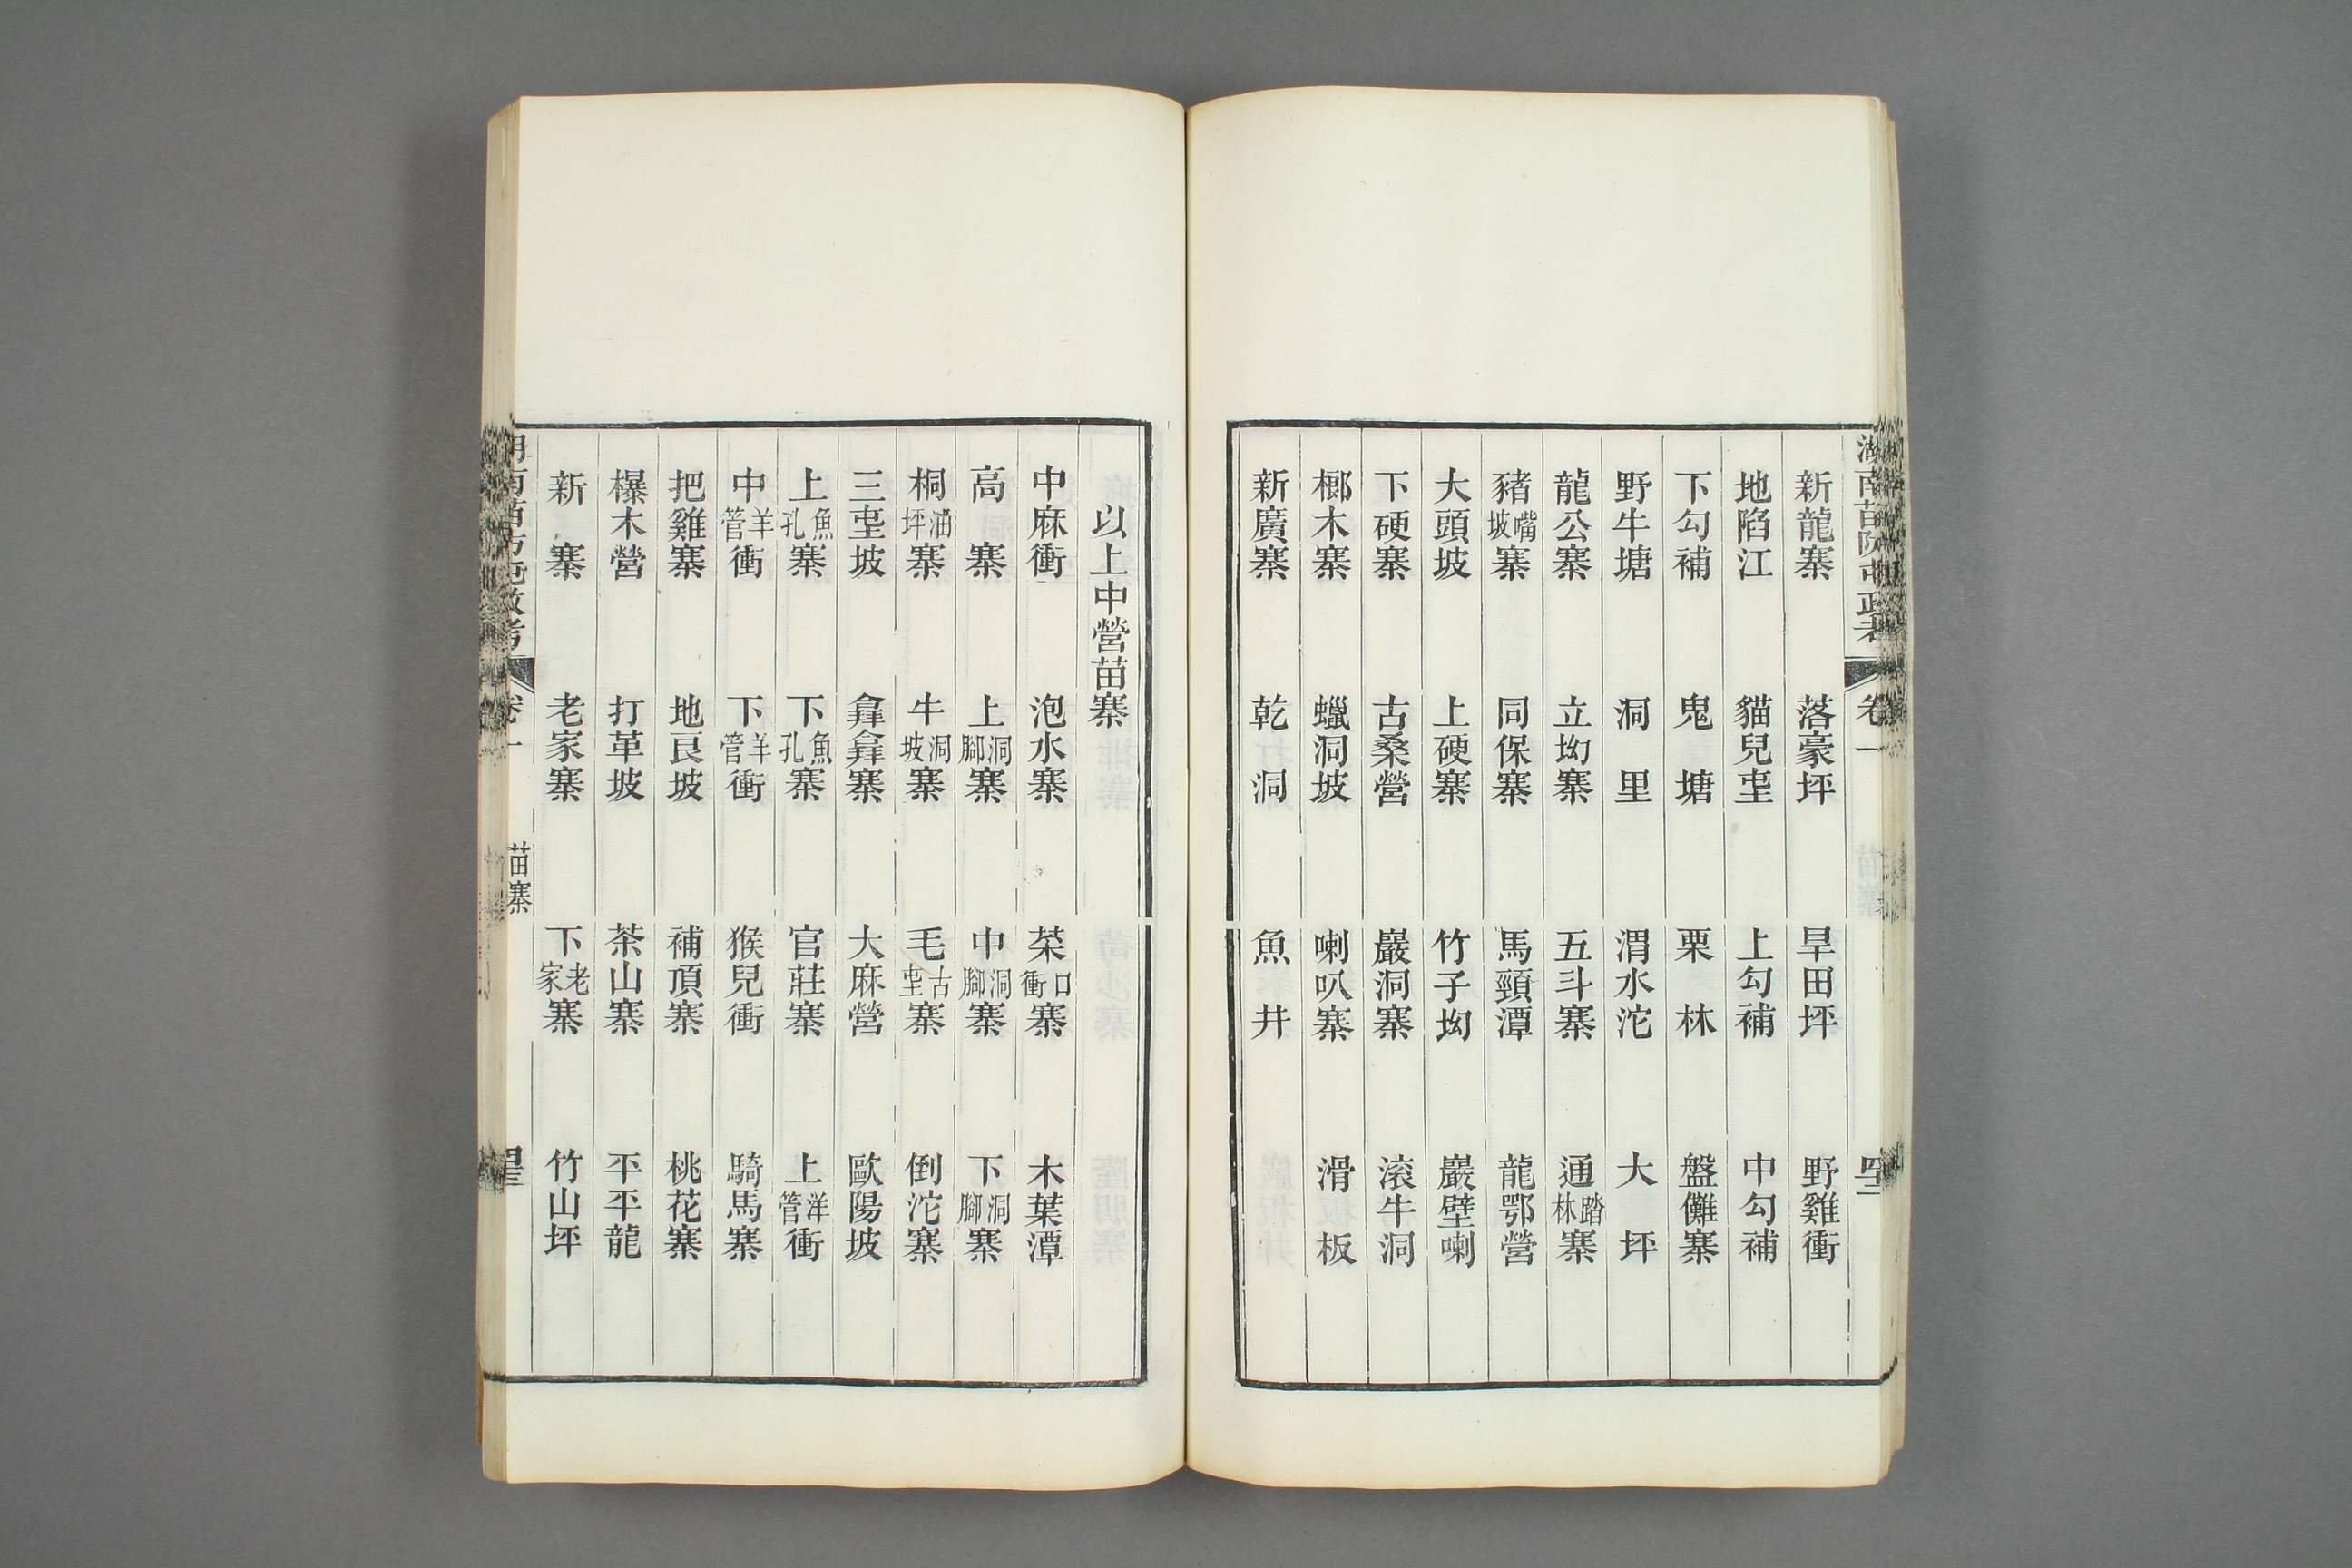 湖南苗防屯政考 卷一
新龍寨 落豪坪 旱田坪 野雞衝
地陷江 貓兒坉 上勾補 中勾補
下勾補 鬼塘 栗林 盤儺寨
野牛塘 洞里 渭水沱 大坪
龍公寨 立坳寨 五斗寨 通踏林寨
豬嘴坡寨 同保寨 馬頸潭 龍鄂營
大頭坡 上硬寨 竹子坳 巖壁喇
下硬寨 古桑營 巖洞寨 滾牛洞
榔木寨 蠟洞坡 喇叭寨 滑板
新廣寨 乾洞 魚井
以上中營苗寨
中麻衝 泡水寨 菜口衝寨 木葉潭
高寨 上洞腳寨 中洞腳寨 下洞腳寨
桐油坪寨 牛洞坡寨 毛古坉寨 倒沱寨
三坉坡 寨 大麻營 歐陽坡
上魚孔寨 下魚孔寨 官莊寨 上洋管衝
中羊管衝 下羊管衝 猴兒衝 騎馬寨
把雞寨 地良坡 補頂寨 桃花寨
木營 打革坡 茶山寨 平平龍
新寨 老家寨 下老家寨 竹山坪
湖南苗防屯政考 卷一 苗寨